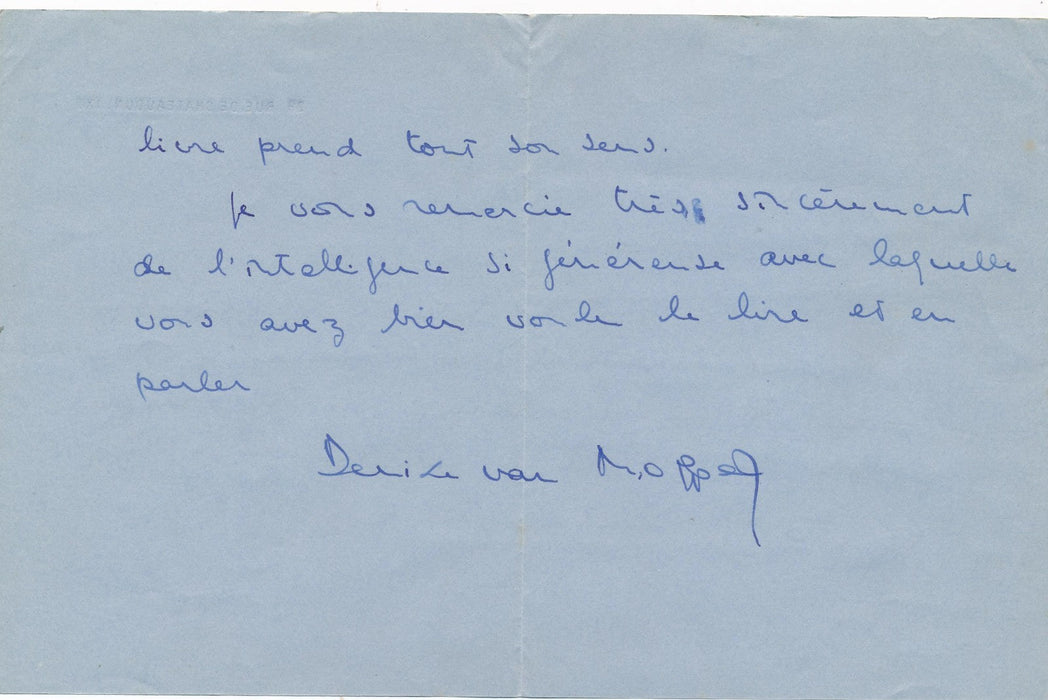 livre prend tout son sens.
Je vous remercie très sincèrement
de l'intelligence si généreuse avec laquelle
vous avez bien voulu le lire et en
parler
Denise van Moppès